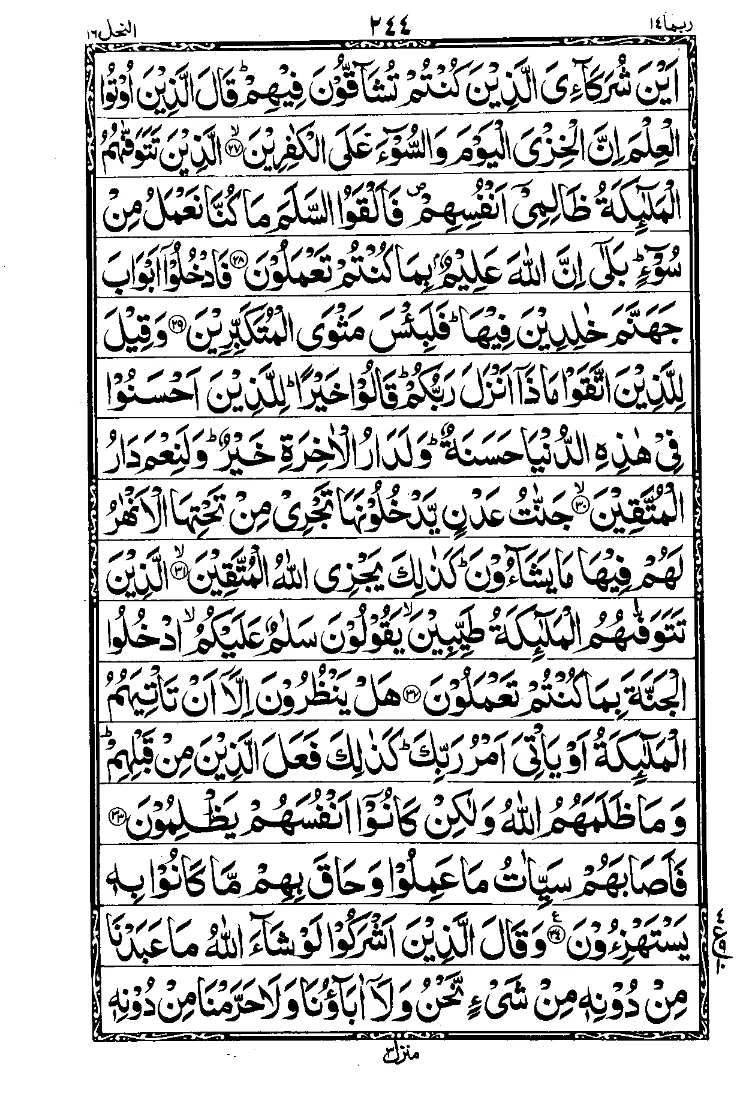 ربما ١٤
٢٤٤
النحل ١٦
اَيْنَ شُرَكَآءِىَ الَّذِيْنَ كُنْتُمْ تُشَآقُّوْنَ فِيْهِمْ ؕ قَالَ الَّذِيْنَ اُوْتُوا
الْعِلْمَ اِنَّ الْخِزْىَ الْيَوْمَ وَالسُّوْٓءَ عَلَى الْكٰفِرِيْنَ ۙ﴿۲۷﴾ الَّذِيْنَ تَتَوَفّٰىهُمُ
الْمَلٰٓئِكَةُ ظَالِمِىْۤ اَنْفُسِهِمْ ۪ فَاَلْقَوُا السَّلَمَ مَا كُنَّا نَعْمَلُ مِنْ
سُوْٓءٍ ؕ بَلٰٓى اِنَّ اللّٰهَ عَلِيْمٌۢ بِمَا كُنْتُمْ تَعْمَلُوْنَ ﴿۲۸﴾ فَادْخُلُوْۤا اَبْوَابَ
جَهَنَّمَ خٰلِدِيْنَ فِيْهَا ؕ فَلَبِئْسَ مَثْوَى الْمُتَكَبِّرِيْنَ ﴿۲۹﴾ وَقِيْلَ
لِلَّذِيْنَ اتَّقَوْا مَاذَاۤ اَنْزَلَ رَبُّكُمْ ؕ قَالُوْا خَيْرًا ؕ لِلَّذِيْنَ اَحْسَنُوْا
فِىْ هٰذِهِ الدُّنْيَا حَسَنَةٌ ؕ وَلَدَارُ الْاٰخِرَةِ خَيْرٌ ؕ وَلَنِعْمَ دَارُ
الْمُتَّقِيْنَ ۙ﴿۳۰﴾ جَنّٰتُ عَدْنٍ يَّدْخُلُوْنَهَا تَجْرِىْ مِنْ تَحْتِهَا الْاَنْهٰرُ
لَهُمْ فِيْهَا مَا يَشَآءُوْنَ ؕ كَذٰلِكَ يَجْزِى اللّٰهُ الْمُتَّقِيْنَ ۙ﴿۳۱﴾ الَّذِيْنَ
تَتَوَفّٰىهُمُ الْمَلٰٓئِكَةُ طَيِّبِيْنَ ۙ يَقُوْلُوْنَ سَلٰمٌ عَلَيْكُمُ ۙ ادْخُلُوا
الْجَنَّةَ بِمَا كُنْتُمْ تَعْمَلُوْنَ ﴿۳۲﴾ هَلْ يَنْظُرُوْنَ اِلَّاۤ اَنْ تَاْتِيَهُمُ
الْمَلٰٓئِكَةُ اَوْ يَاْتِىَ اَمْرُ رَبِّكَ ؕ كَذٰلِكَ فَعَلَ الَّذِيْنَ مِنْ قَبْلِهِمْ ؕ
وَمَا ظَلَمَهُمُ اللّٰهُ وَلٰكِنْ كَانُوْۤا اَنْفُسَهُمْ يَظْلِمُوْنَ ﴿۳۳﴾
فَاَصَابَهُمْ سَيِّاٰتُ مَا عَمِلُوْا وَحَاقَ بِهِمْ مَّا كَانُوْا بِهٖ
يَسْتَهْزِءُوْنَ ﴿۳۴﴾ وَقَالَ الَّذِيْنَ اَشْرَكُوْا لَوْ شَآءَ اللّٰهُ مَا عَبَدْنَا
مِنْ دُوْنِهٖ مِنْ شَىْءٍ نَّحْنُ وَلَاۤ اٰبَآؤُنَا وَلَا حَرَّمْنَا مِنْ دُوْنِهٖ
منزل ٣